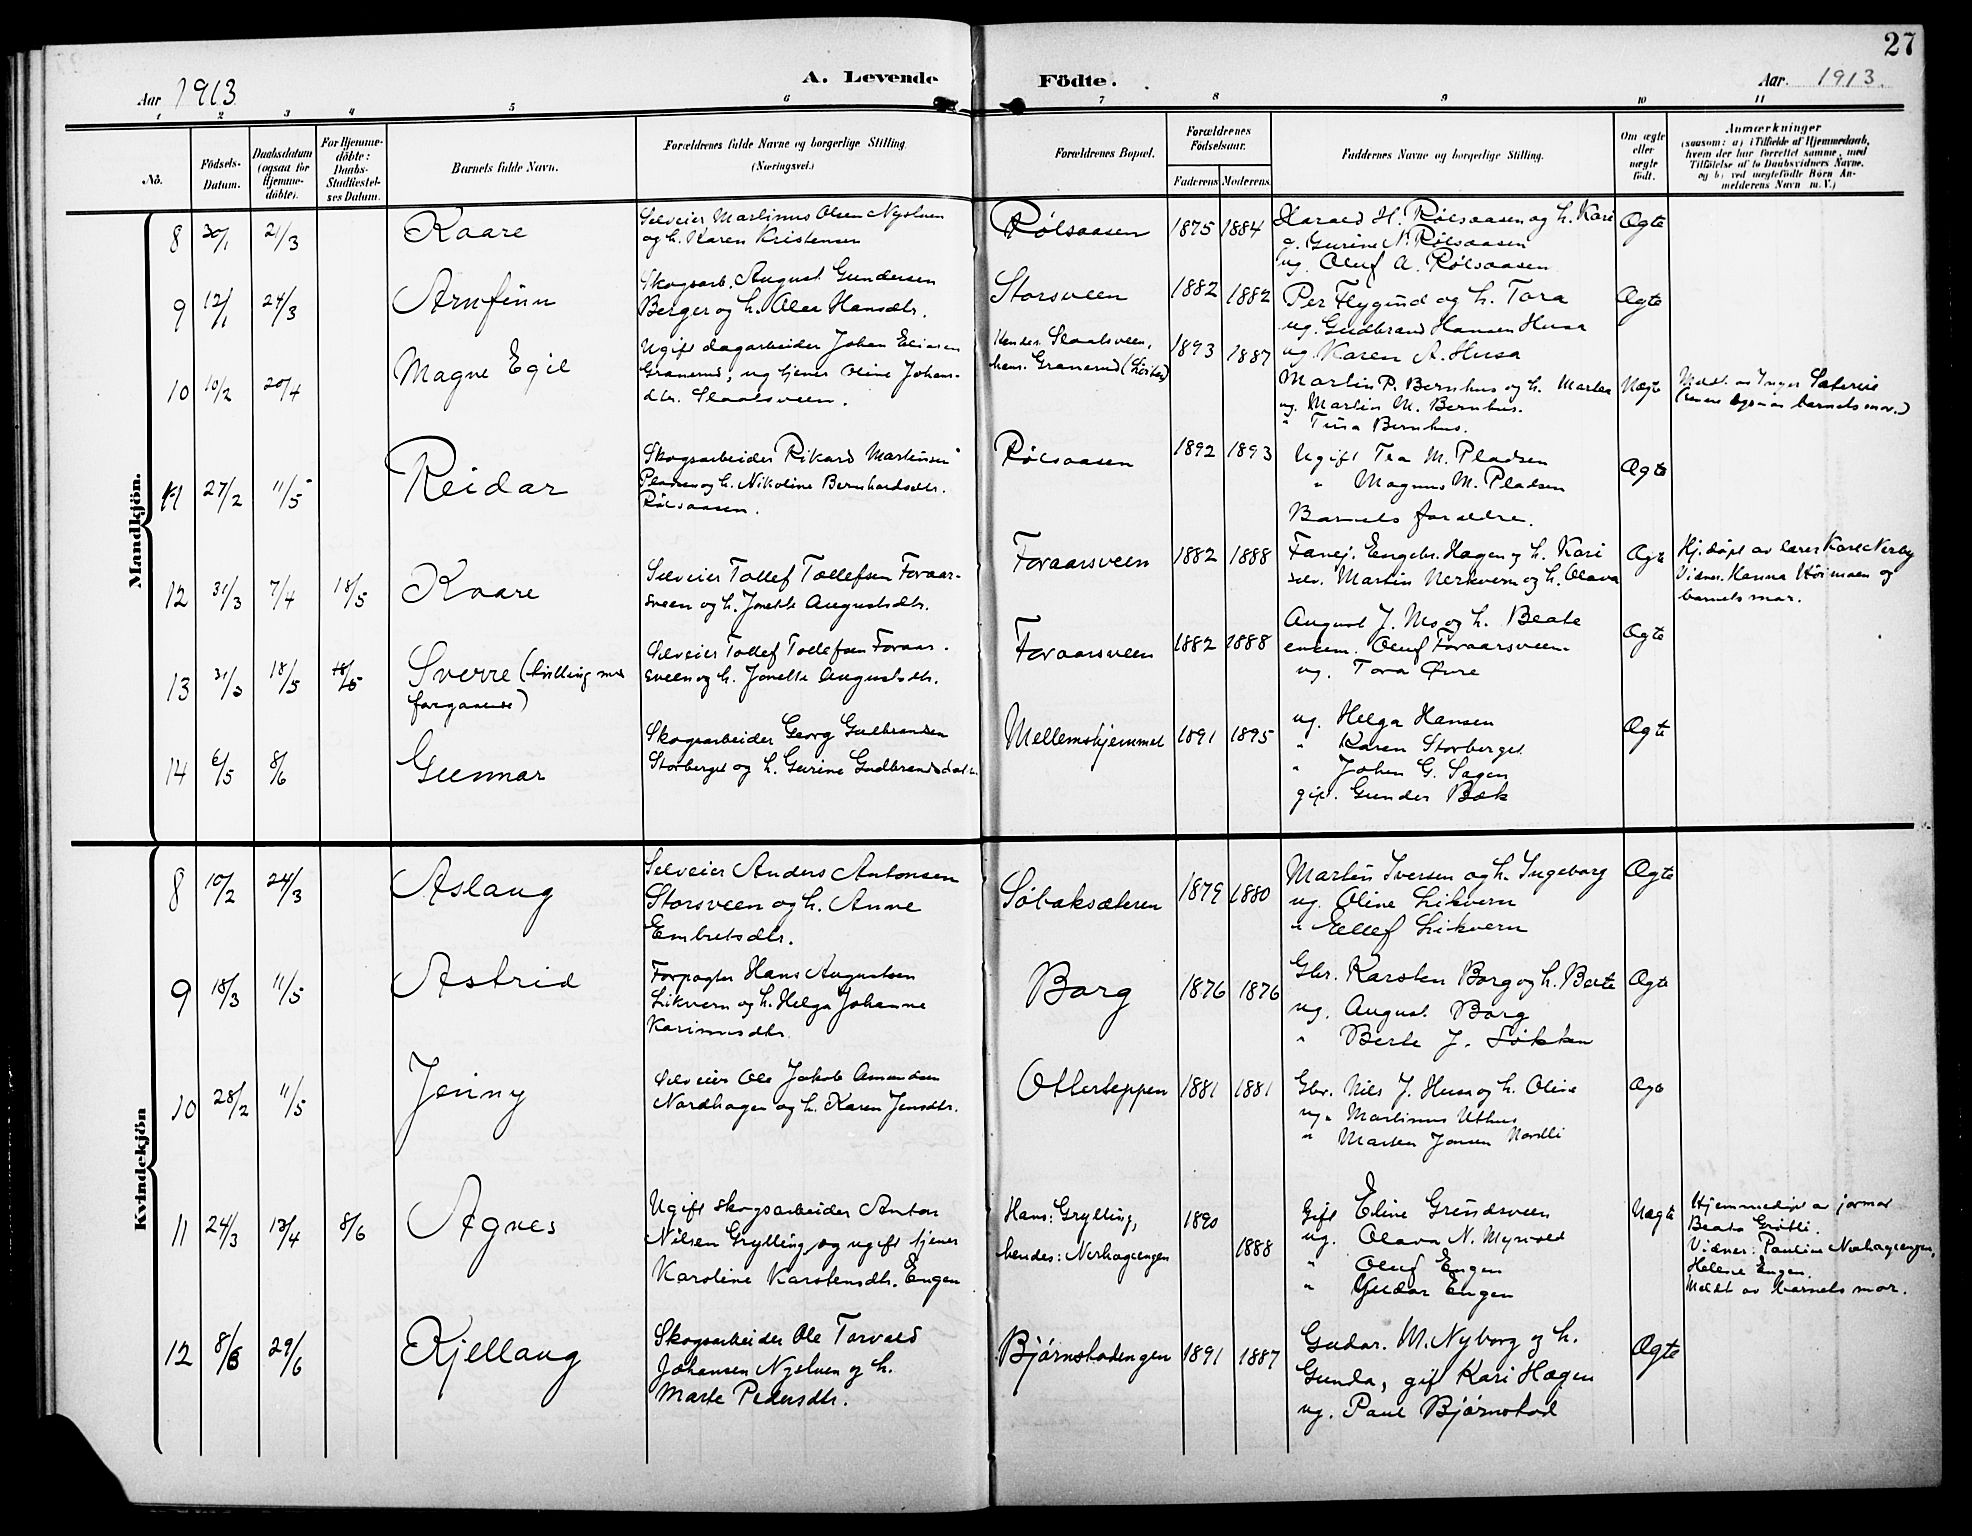 27
Aar 1913.
A. Levende
Födte.
Aar. 1913.
1 2 3 4 5 6 7 8 9 10 11
No.
Födsels-
Datum.
Daabsdatum
(ogsaa for
Hjemme-
döbte).
For Hjemme-
döbte:
Daabs-
Stadfæstel-
ses Datum.
Barnets fulde Navn.
Forældrenes fulde Navne og borgerlige Stilling.
(Næringsvei.)
Forældrenes Bopæl.
Forældrenes
Födselsaar.
Faderens Moderens
Faddernes Navne og borgerlige Stilling.
Om ægte
eller
uægte
födt.
Anmærkninger
(saasom: a) i Tilfælde af Hjemmedaab,
hvem der har forrettet samme, med
Tilföielse af to Daabsvidners Navne,
og b) ved uægtefödte Börn An-
melderens Navn m. V.)
Mandkjön.
8 30/1 21/3 Kaare
Selveier Martinus Olsen Nysluen
og h. Karen Kristensen
Rølsaasen 1875 1884
Harald H. Rølsaasen og h. Kari
g. Gurine N. Rølsaasen
ug. Oluf A. Rølsaasen
Ægte
9 12/1 24/3 Arnfinn
Skogsarb. August Gundersen
Berger og h. Olea Hansdtr.
Storsveen 1882 1882
Per Flygind og h. Tora
ug. Gudbrand Hansen Husa
ug. Karen A. Husa
Ægte
10 10/2 20/4 Magne Egil
Ugift dagarbeider Johan Eliasen
Granerud, ug tjener Oline Johans-
dtr. Slaatsveen.
Hendes: Slaatsveen,
hans: Granerud
1893 1887
Martin P. Bernhus og h. Martea
ug. Martin M. Bernhus.
" Tina Bernhus.
Uægte
Meldt av Inger Sæterlie
barnets mor.)
11 27/2 11/5 Reidar
Skogsarbeider Rikard Martinsen
Pladsen og h. Nikoline Bernhardsdtr.
Rølsaasen.
Rølsaasen 1892 1893
Ugift Tea M. Pladsen
" Magnus M. Pladsen
Barnets forældre.
Ægte
12 31/3 7/4 18/5 Kaare
Selveier Tollef Tollefsen Foraar-
sveen og h. Jonette Augustsdtr.
Foraarsveen 1882 1888
Fanej. Engebr. Hagen og h. Kari
selv. Martin Nerkvern og h. Olava
Ægte
Hj.døpt av lærer Kare Nerby
Vidner: Hanna Størmoen og
barnets mor.
13 31/3 18/5 18/5 Sverre (tvilling med
foregaaende)
Selveier Tollef Tollefsen Foraar-
sveen og h. Jonette Augustsdtr.
Foraarsveen 1882 1888
August J. Mo og h. Beate
enkem. Oluf Foraarsveen
ug. Tora Øvre
Ægte
14 6/5 8/6 Gunnar
Skogsarbeider Georg Gulbrandsen
Storberget og h. Gurine Gudbrandsdatter
Mellemskjemmet 1891 1895
ug. Helga Hansen
" Karen Storberget
" Johan G. Sagen
gift. Gunder Bæk
Ægte
Kvindekjön
8 10/2 24/3 Aslaug
Selveier Anders Antonsen
Storsveen og h. Anne
Embretsdtr.
Søbaksæteren 1879 1880
Martin Iversen og h. Ingeborg
ug. Oline Likvern
" Ellef Likvern
Ægte
9 18/3 11/5 Astrid
Forpagter Hans Augustsen
Likvern og h. Helga Johanne
Karinusdtr.
Borg 1876 1876
Gbr. Karsten Borg og h. Berte
ug. August Borg
" Berte J. Løkken
Ægte
10 28/2 11/5 Jenny
Selveier Ole Jakob Amundsen
Nordhagen og h. Karen Jensdtr.
Otterteppen 1881 1881
Gbr. Nils J. Husa og h. Oline
ug. Martinus Uthus
" Marten Jonsen Nordli
Ægte
11 24/3 13/4 8/6 Agnes
Ugift skogsarbeider Anton
Nilsen Grylling og ugift tjener
Karoline Karstensdtr. Engen
Hans: Grylling,
hendes: Nerhagengen
1890 1888
Gift Eline Grindsveen
ug. Olava N. Myrvold
" Oluf Engen
" Gudar Engen
Uægte
Hjemmedøpt av jormor
Beate Grøtli.
Vidner: Pauline Nerhagengen,
Helene Engen.
Meldt av barnets mor.
12 8/6 29/6 Kjellaug
Skogsarbeider Ole Torvald
Johansen Nysluen og h.
Marte Pedersdtr.
Bjørnstadengen 1891 1887
Gudar. M. Nyborg og h.
Gunda, gift Kari Hagen
ug. Paul Bjørnstad
Ægte